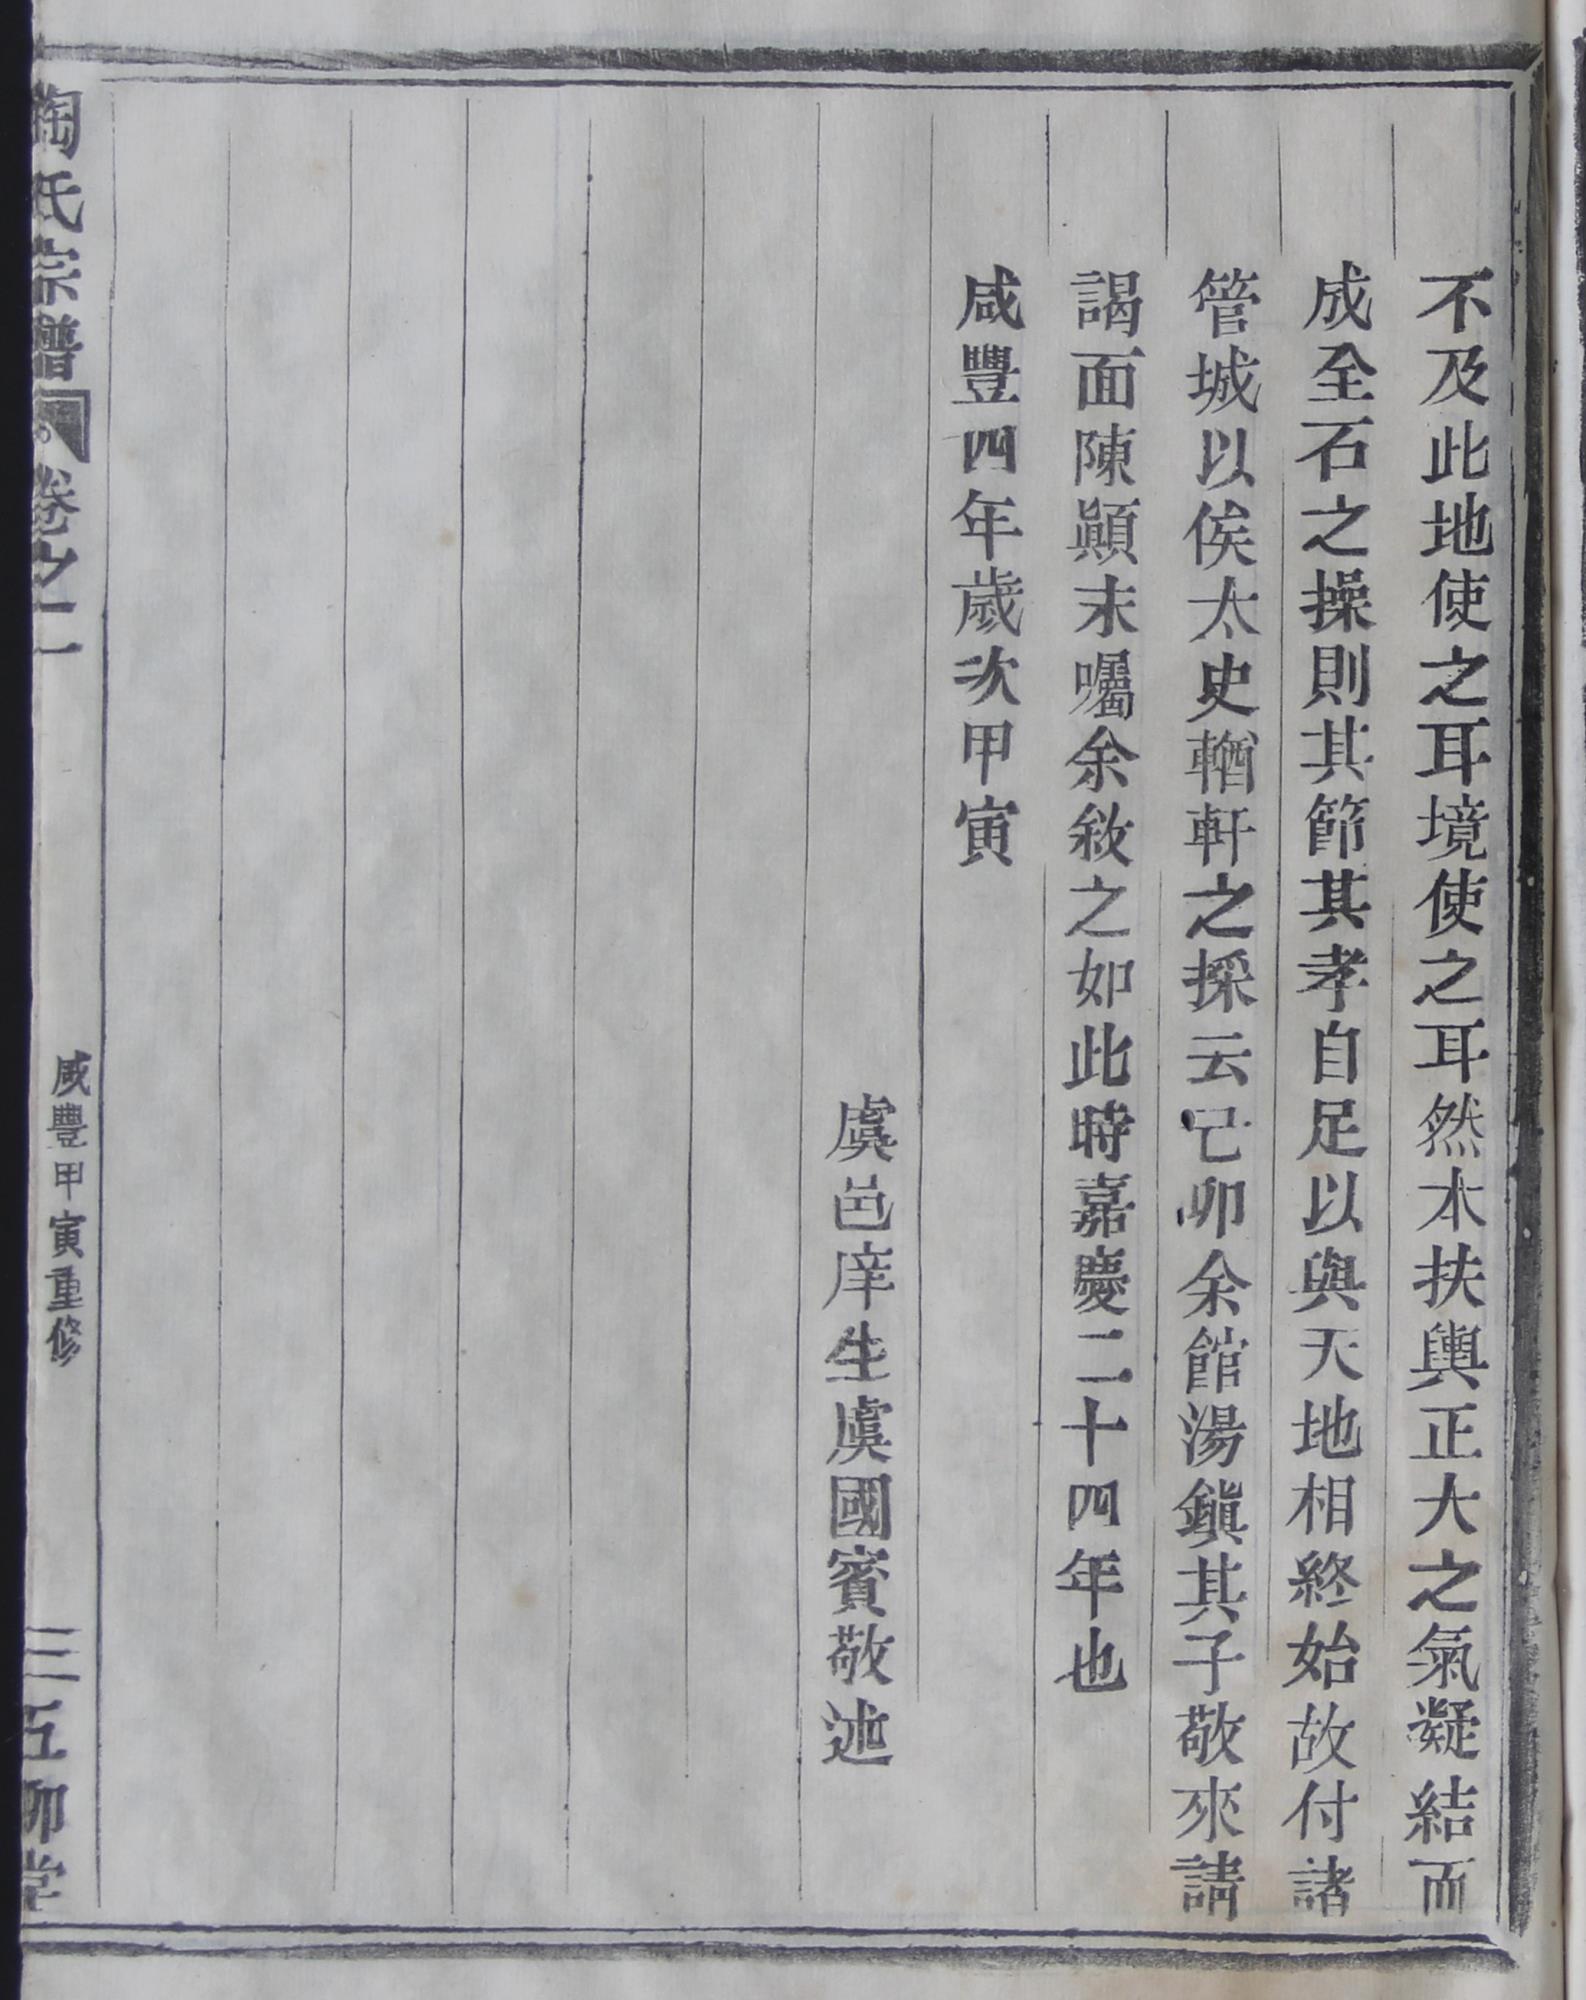 不及此地使之耳境使之耳然木扶輿正大之氣凝結而
成全石之操則其節其孝自足以與天地相終始故付諸
管城以俟太史輶軒之採云己卯余館湯鎮其子敬來請
謁面陳顚末囑余敘之如此時嘉慶二十四年也
咸豐四年歲次甲寅
虞邑庠生虞國賓敬述
陶氏宗譜 卷之二 咸豐甲寅重修 三 五柳堂